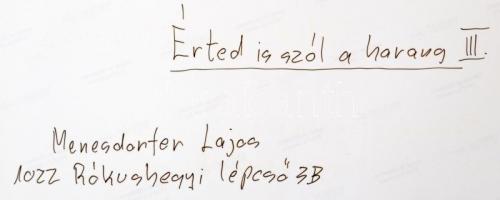 Érted is szól a harang III.
Menesdorfer Lajos
1022 Rókushegyi lépcső 3B